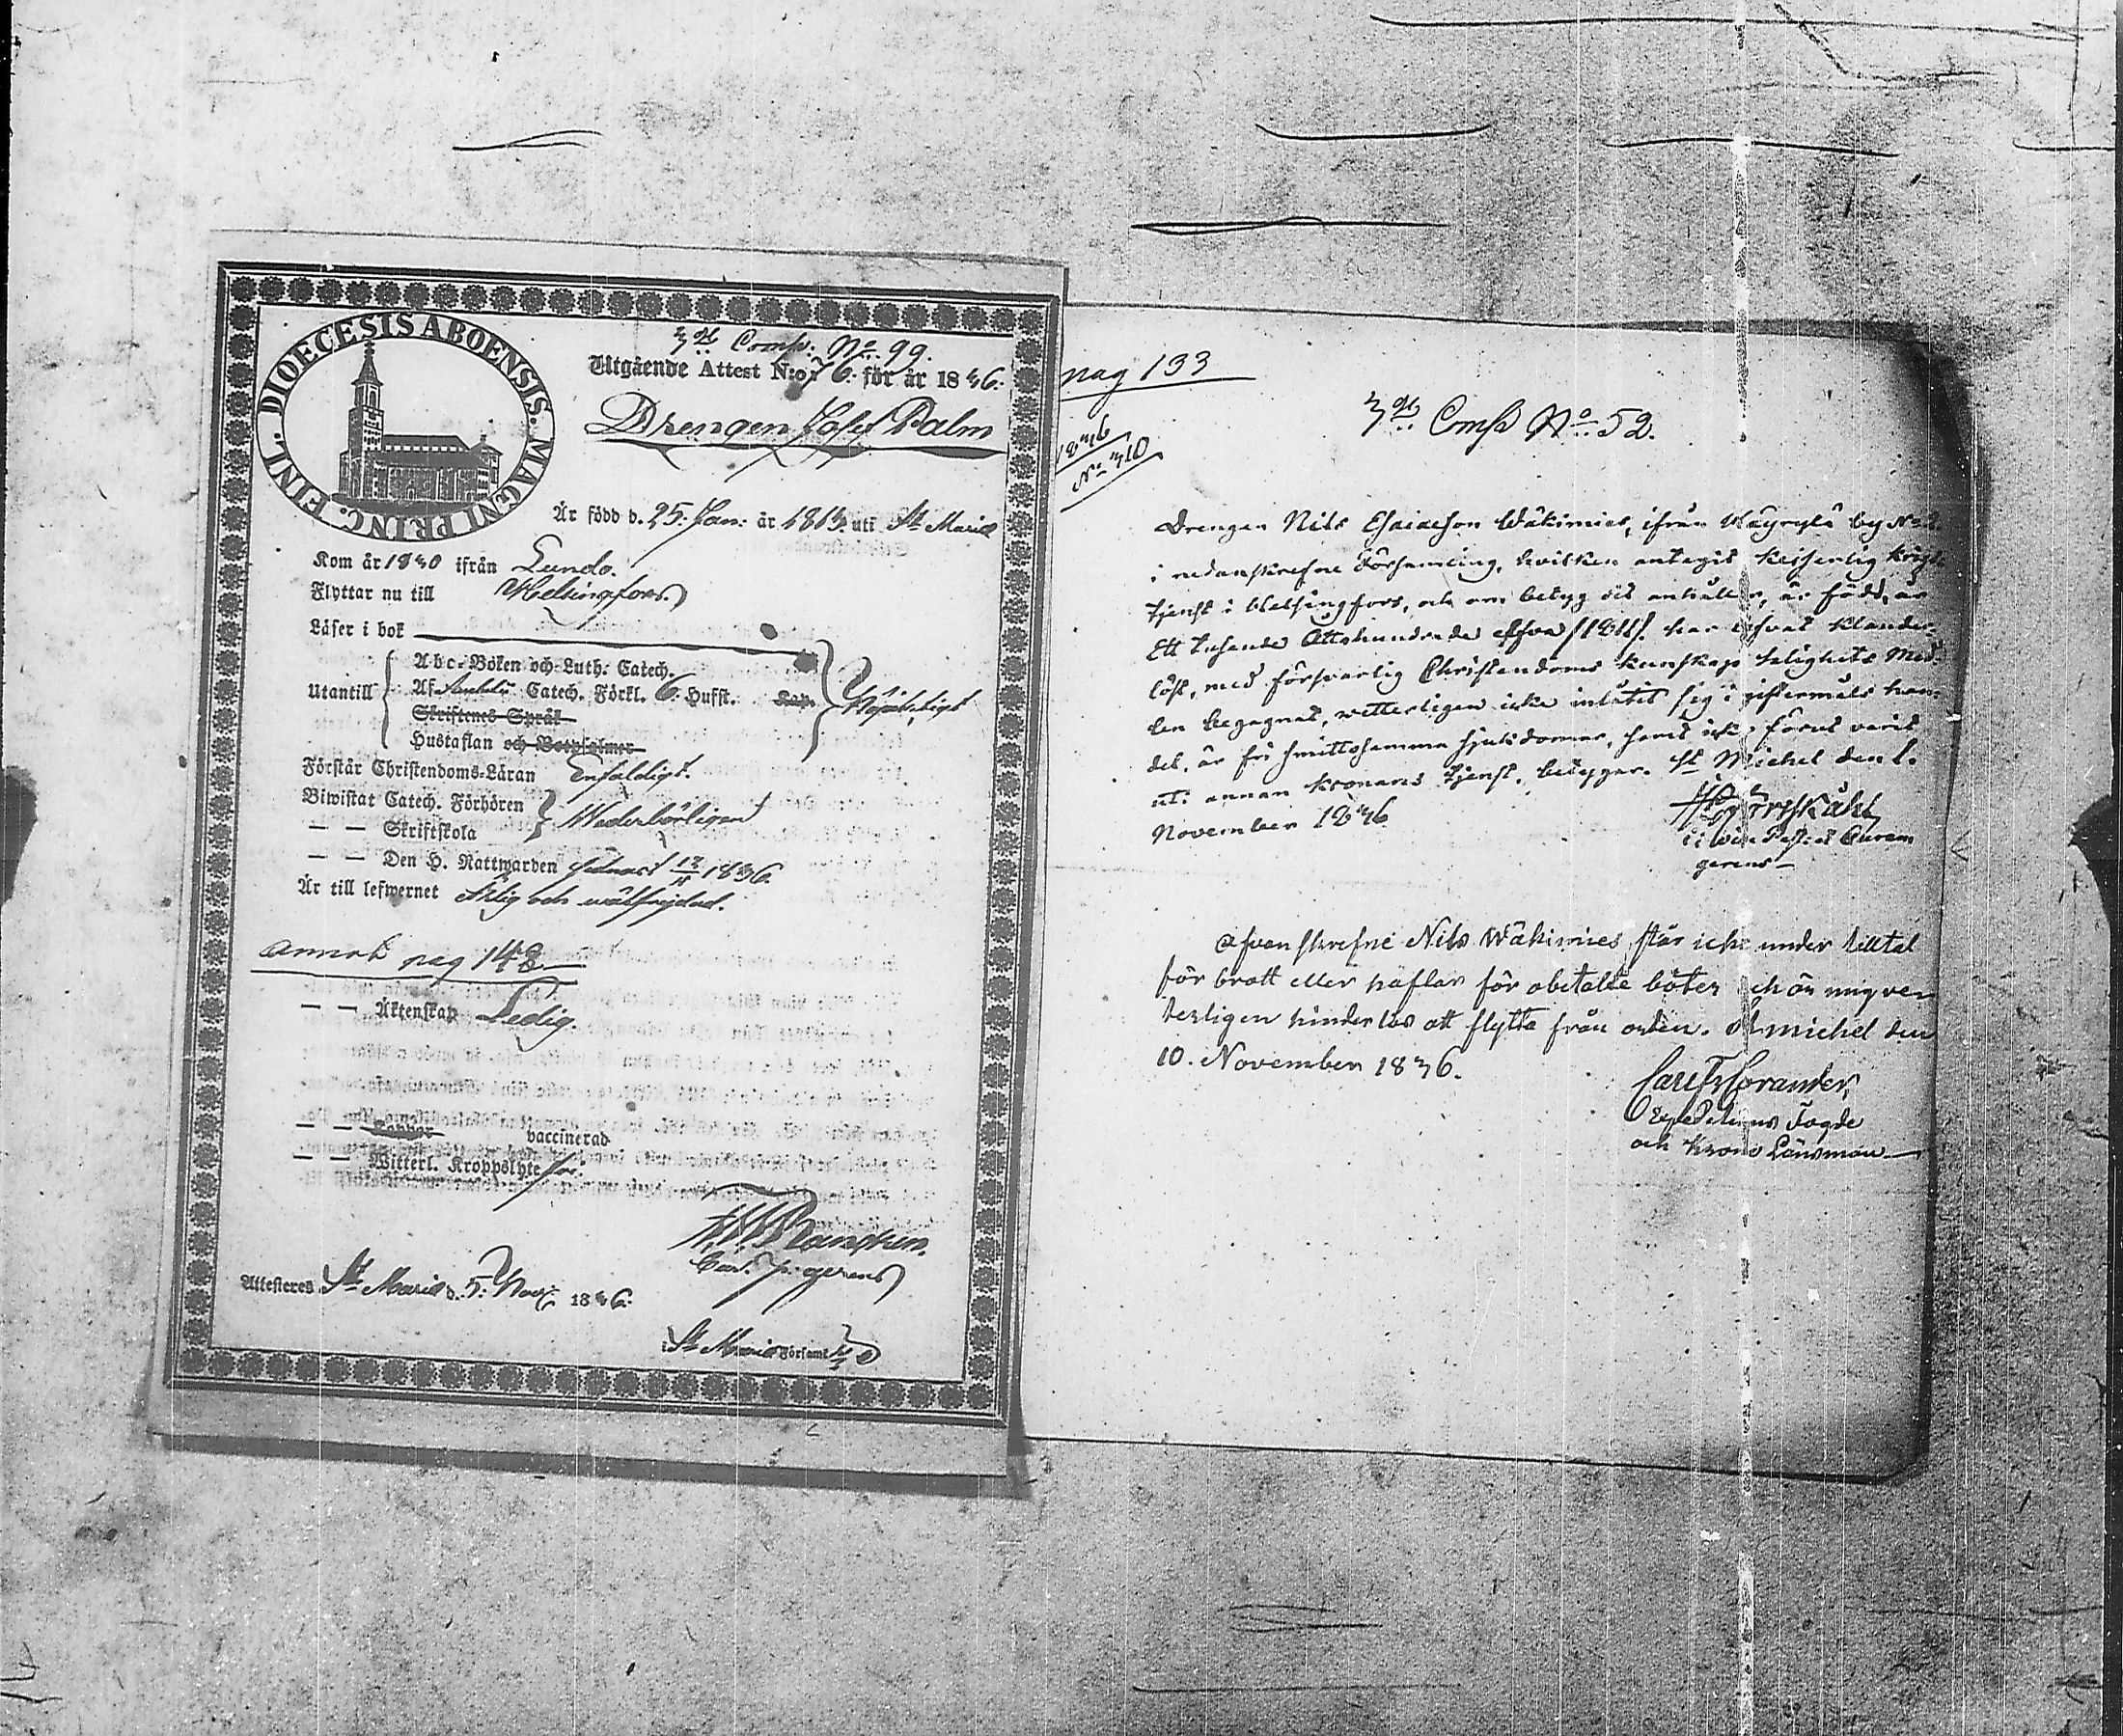 DIOECESIS ABOENSIS. MAGNI PRINC. FINL.
3:dje Comp: No: 99.
Utgående Attest N:o 76. för år 1836.
Drengen Josef Palm
Är född d. 25: Jan: år 1813. uti St Marie
Kom år 1830 ifrån Lundo.
Flyttar nu till Helsingfors.
Läser i bok
Utantill
Abc-Boken och Luth. Catech.
Af Catech. Förkl. 6. Hufst. Kap.
Skriftenes Språk
Hustaflan och Botpsalmer
Nöjaktigt
Förstår Christendoms-Läran Enfaldigt.
Biwistat Catech. Förhören
— — Skriftskola
Wederbörligen
— — Den H. Nattwarden sednast 1836.
Är till lefwernet ärlig och wälfrejdad.
annot pag 148
— — Äktenskap Ledig.
— — Koppor vaccinerad
— — Witterl. Kroppslyte fri.
Attesteras St Marie d. 5: Nov: 1836.
i St Marie Förssaml.
pag 133
1836
No 310
3:dje Comp No: 52.
Drengen Nils Esaiaeson Wäkimies, ifrån by No
i nedanskrefne Församling, hvilken antagit Kejserlig Krigs-
tjenst i Helsingfors, och om betyg sit anhåller, är född, år
Ett tusende Ottahundrade elfva /1811/. har lefvat klander-
löst, med försvarlig Christendoms kunskap salighets Med-
len begagnat, vetterligen icke inlåtit sig i giftermåls han-
del, är fri smittosamma sjukdomar, samt icke förut varit
uti annan Kronans tjenst, betygar. St Michel den 1.
November 1836
gerens
Ofvanskrefne Nils Wäkimies, står icke under tilltal
för brott eller häftar för obetalte böter och är mig vet
terligen hinderlös att flytta från orten. St michel den
10. November 1836.
Expeditions Fogde
och Krono Länsman